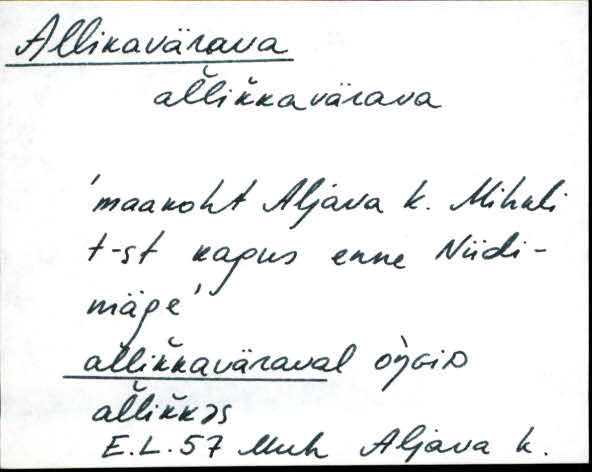 Allikavärava
al̆lik̆kavärava
'maakoht Aljava k. Mihkli
t-st kagus enne Niidi-
mäge'
al̆lik̆kaväraval
al̆lik̆kəs
E.L. 57 Muh Aljava k.